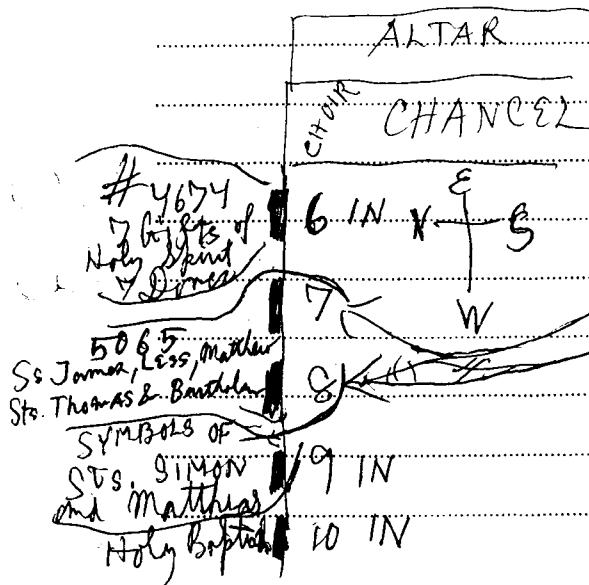 ALTAR
CHOIR
CHANCEL
# 4674
7 Gifts of
Holy Spirit
7 Doves
6 IN
E
N S
W
7
5065
Ss James, Less, Matthew
Sts. Thomas & Barthol
8
SYMBOLS OF
STS. SIMON
and Matthias
9 IN
Holy Baptism
10 IN